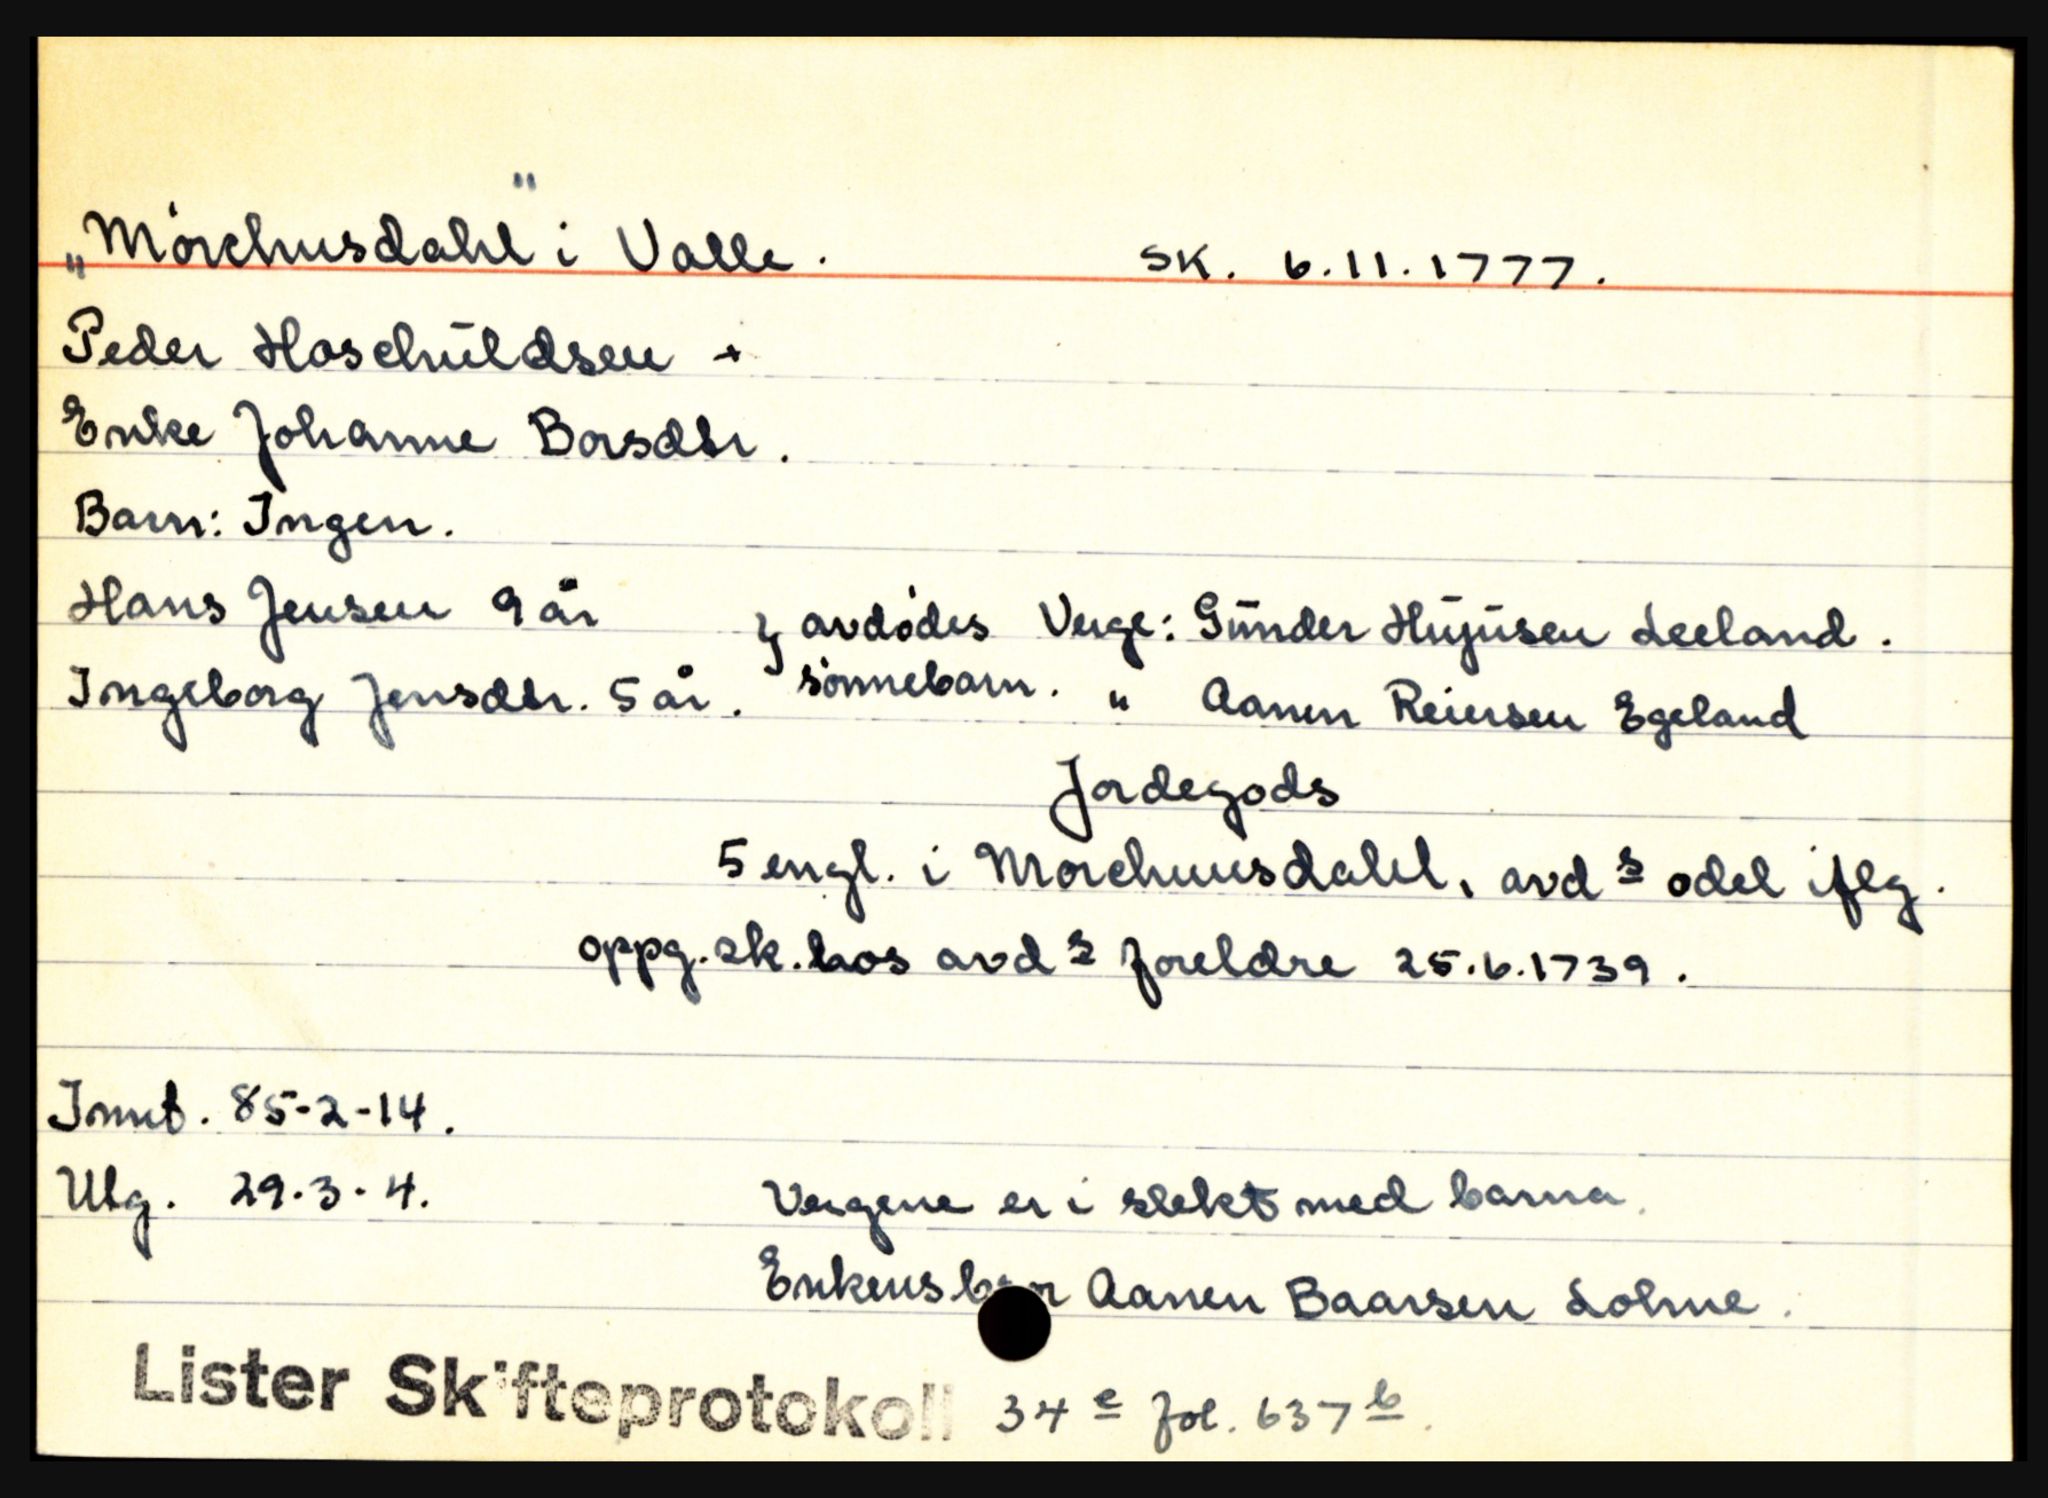 „Mörchusdahl" i Valle. SK. 6.11.1777.
Peder Haschüldsen +
Enke Johanne Borsdtr.
Barn: Ingen.
Hans Jensen 9 år } avdødes Verge: Günder Hüjüsen Leeland.
Ingeborg Jensdtr. 5 år. sønnebarn. " Aanen Reiersen Egeland
Jordegods
5 engl. i Morchuusdahl, avd s odel iflg.
oppg. sk. hos avd s foreldre 25.6.1739.
Innt. 85-2-14.
Utg. 29.3-4. Vergene er i slekt med barna.
Enkens bror Aanen Baarsen Lohne.
Lister Skifteprotokoll 34 e fol. 637 b.